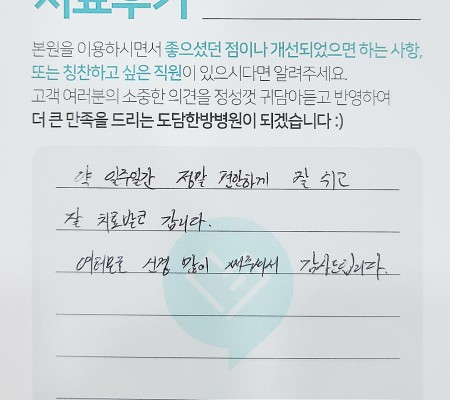 치료후기
본원을 이용하시면서 좋으셨던 점이나 개선되었으면 하는 사항,
또는 칭찬하고 싶은 직원이 있으시다면 알려주세요.
고객 여러분의 소중한 의견을 정성껏 귀담아듣고 반영하여
더 큰 만족을 드리는 도담한방병원이 되겠습니다 :)
약 일주일간 정말 편안하게 잘 쉬고
잘 치료받고 갑니다.
여러모로 신경 많이 써주셔서 감사드립니다.